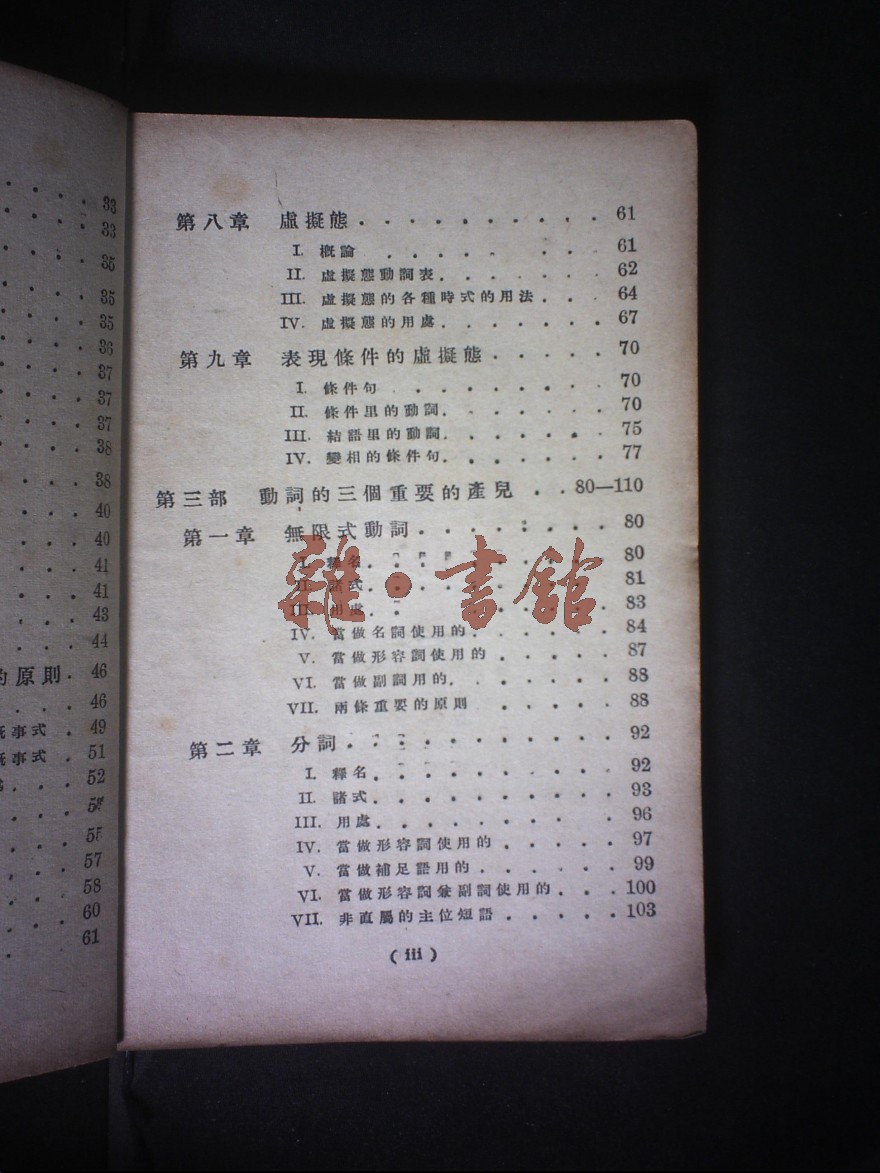 33
33
35
35
35
36
37
37
37
38
38
40
40
41
41
43
44
的原則 . 46
. . . . 46
事式 . 49
事式 . 51
. . . 52
55
57
58
60
61
第八章 虛擬態 . . . . . . . . . . 61
I. 概論 . . . . . . . . 61
II. 虛擬態動詞表 . . . . . . . 62
III. 虛擬態的各種時式的用法 . . . 64
IV. 虛擬態的用處 . . . . . . . 67
第九章 表現條件的虛擬態 . . . . . 70
I. 條件句 . . . . . . . . . 70
II. 條件里的動詞 . . . . . . . 70
III. 結語里的動詞 . . . . . . . 75
IV. 變相的條件句 . . . . . . . 77
第三部 動詞的三個重要的產兒 . . 80—110
第一章 無限式動詞 . . . . . . . . 80
I. 釋名 . . . . . . . . . . 80
II. 諸式 . . . . . . . . . . 81
III. 用處 . . . . . . . . . . 83
IV. 當做名詞使用的 . . . . . . 84
V. 當做形容詞使用的 . . . . . 87
VI. 當做副詞用的 . . . . . . . 88
VII. 兩條重要的原則 . . . . . . 88
第二章 分詞 . . . . . . . . . . . 92
I. 釋名 . . . . . . . . . . 92
II. 諸式 . . . . . . . . . . 93
III. 用處 . . . . . . . . . . 96
IV. 當做形容詞使用的 . . . . . 97
V. 當做補足語用的 . . . . . . 99
VI. 當做形容詞兼副詞使用的 . . . 100
VII. 非直屬的主位短語 . . . . . 103
( iii )
雜·書館